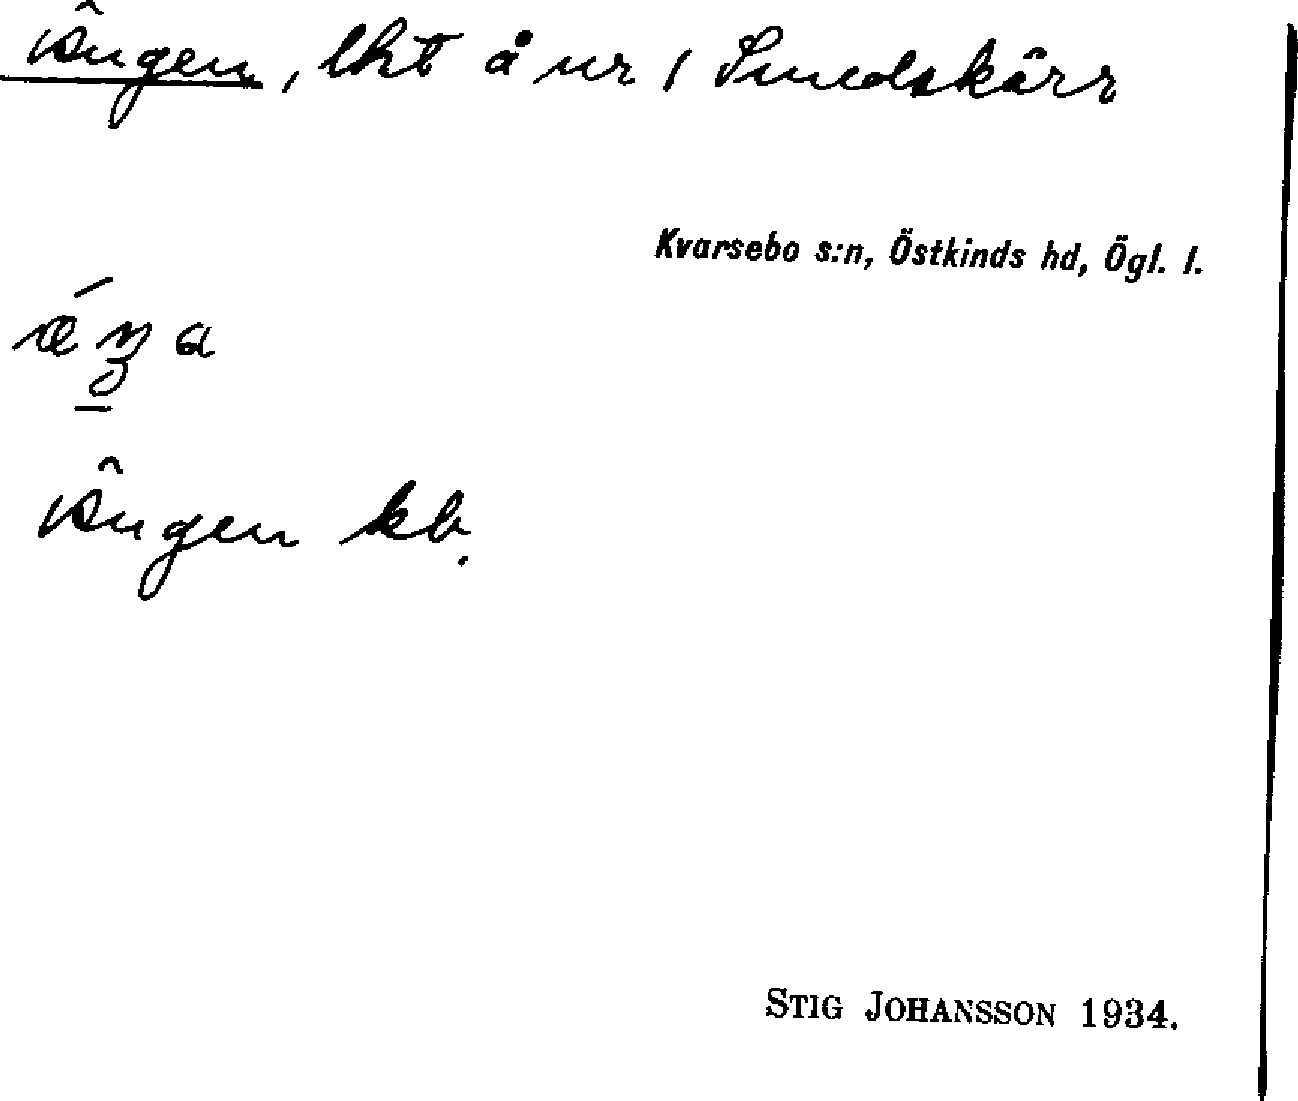 Ängen, lht å nr 1 Smedskärr
Kvarsebo s:n, Östkinds hd, Ögl. l.
Ängen kb.
STIG JOHANSSON 1934.